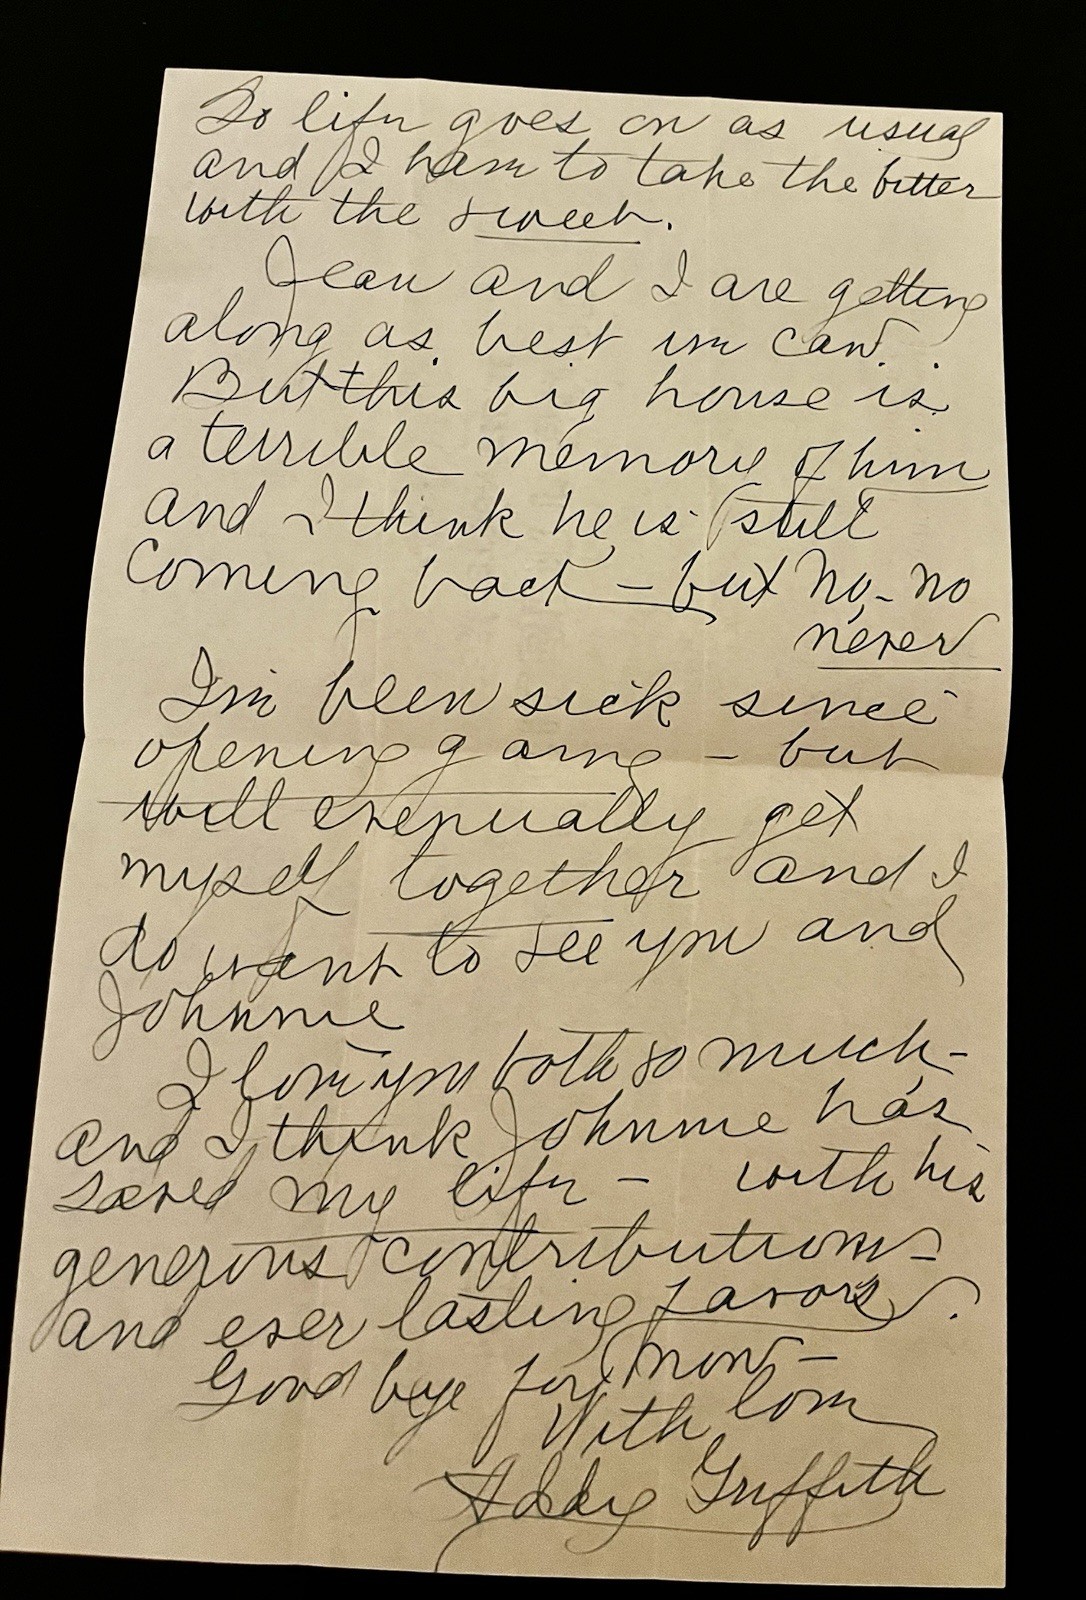 So life goes on as usual
and I have to take the bitter
with the sweet.
Jean and I are getting
along as best we can.
But this big house is
a terrible memory of him
and I think he is still
coming back - but no - no
never
I've been sick since
opening game - but
will evenually get
myself together and I
do want to see you and
Johnnie
I love you both so much -
and I think Johnnie has
saved my life - with his
generous contributions -
and ever lasting favors.
Good bye for now -
With love
Addie Griffith